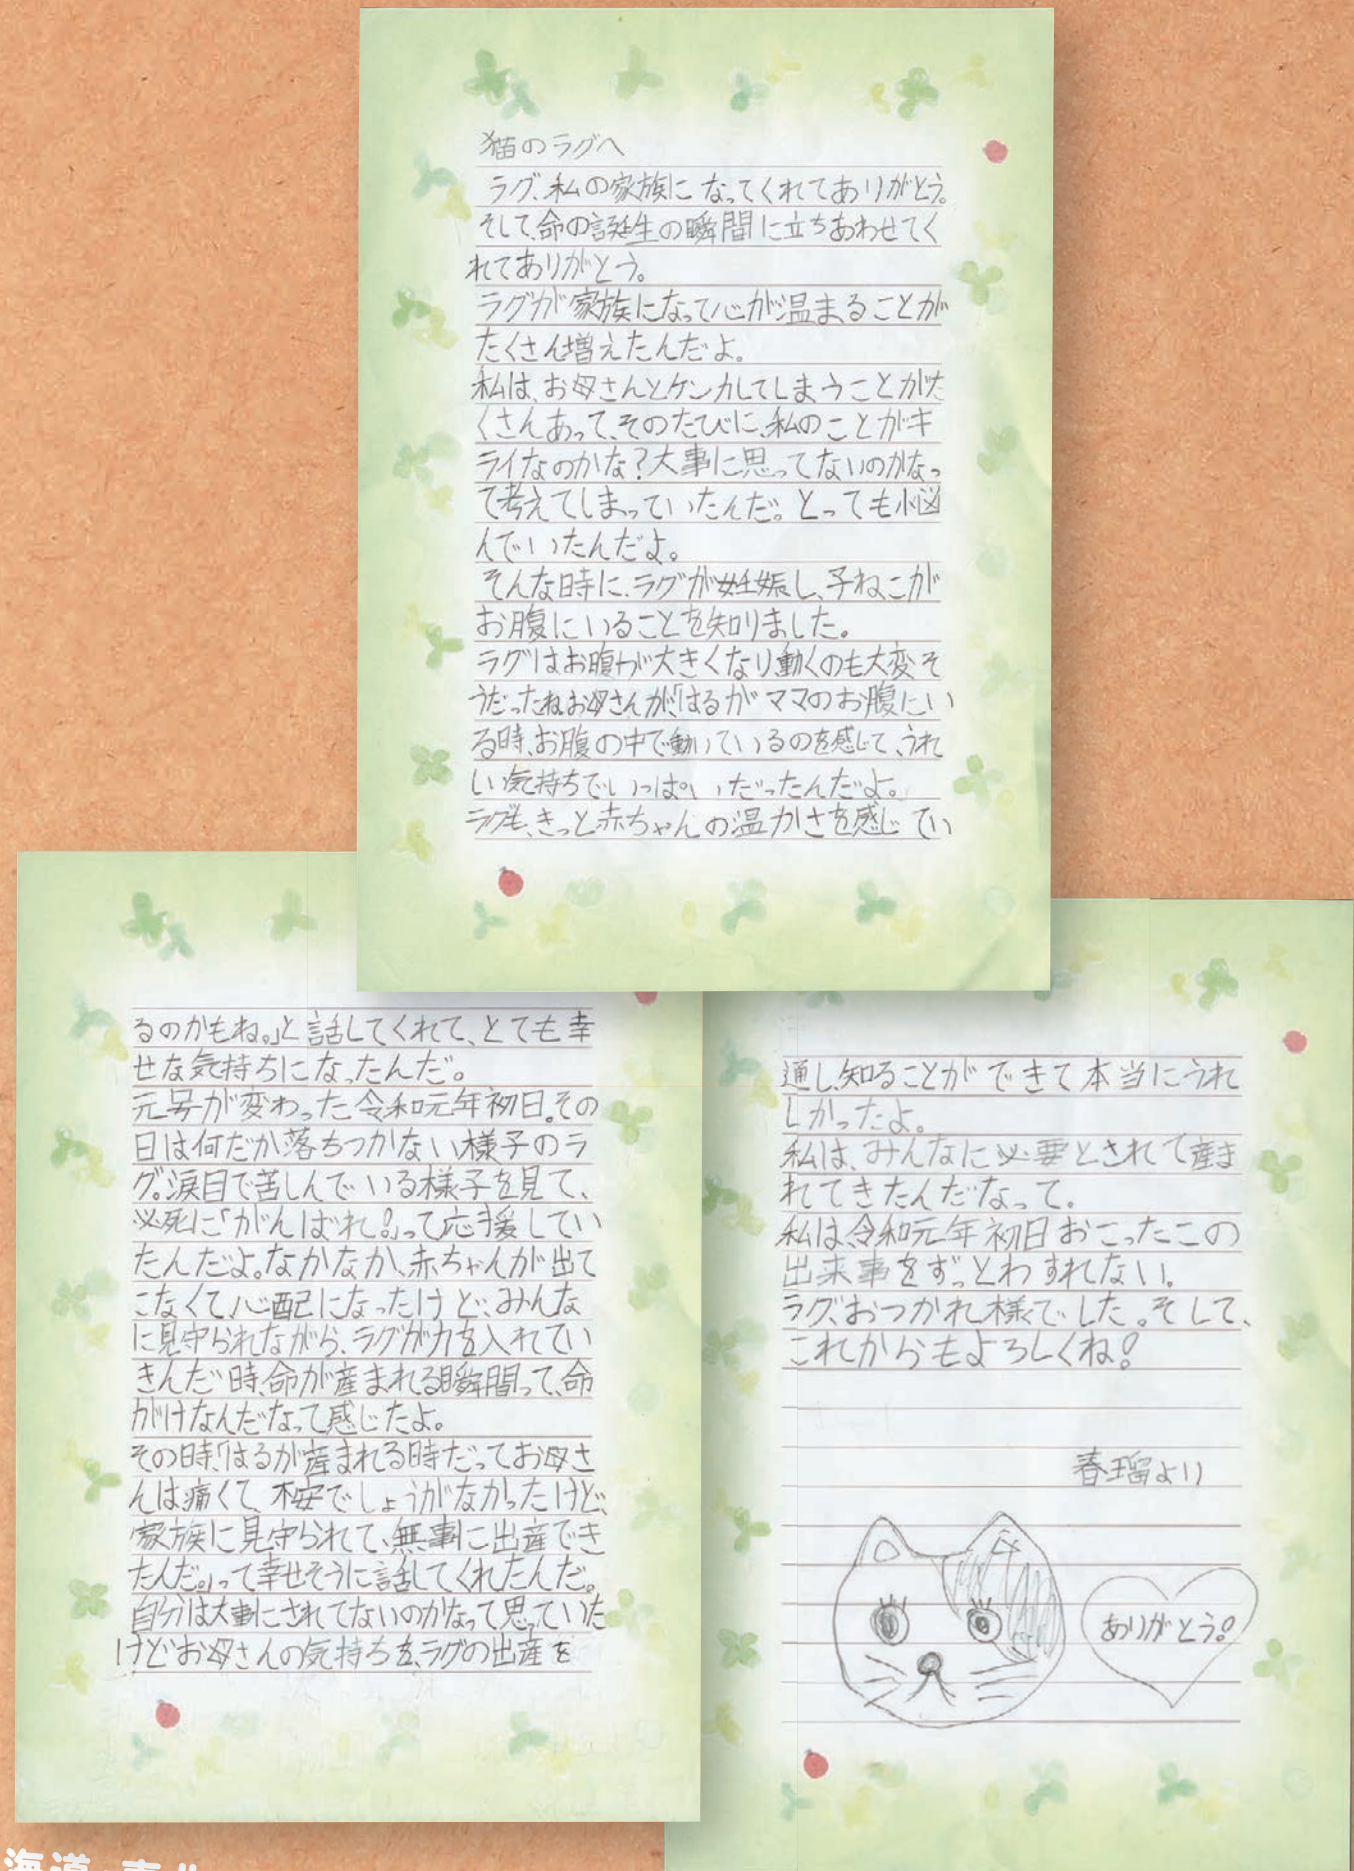 猫のラグへ
ラグ、私の家族になってくれてありがとう。
そして、命の誕生の瞬間に立ちあわせてく
れてありがとう。
ラグが家族になって心が温まることが
たくさん増えたんだよ。
私は、お母さんとケンカしてしまうことがた
くさんあって、そのたびに、私のことがキ
ライなのかな?大事に思ってないのかなっ
て考えてしまっていたんだ。とっても悩
んでいたんだよ。
そんな時に、ラグが妊娠し、子ねこが
お腹にいることを知りました。
ラグはお腹が大きくなり動くのも大変そ
うだったねお母さんが「はるがママのお腹にい
る時、お腹の中で動いているのを感じて、うれし
い気持ちでいっぱいだったんだよ。
ラグも、きっと赤ちゃんの温かさを感じてい
るのかもね。」と話してくれて、とても幸
せな気持ちになったんだ。
元号が変わった令和元年初日。その
日は何だか落ちつかない様子のラ
グ。涙目で苦しんでいる様子を見て、
必死に「がんばれ!」って応援してい
たんだよ。なかなか、赤ちゃんが出て
こなくて、心配になったけど、みんな
に見守られながら、ラグが力を入れてい
きんだ時、命が産まれる瞬間って、命
がけなんだなって感じたよ。
その時、「はるが産まれる時だってお母さ
んは痛くて、不安でしょうがなかったけど、
家族に見守られて、無事に出産でき
たんだ。」って幸せそうに話してくれたんだ。
自分は大事にされてないのかなって思っていた
けどお母さんの気持ちを、ラグの出産を
通し、知ることができて本当にうれ
しかったよ。
私は、みんなに必要とされて産ま
れてきたんだなって。
私は令和元年初日おこったこの
出来事をずっとわすれない。
ラグ、おつかれ様でした。そして、
これからもよろしくね!
春瑠より
ありがとう!